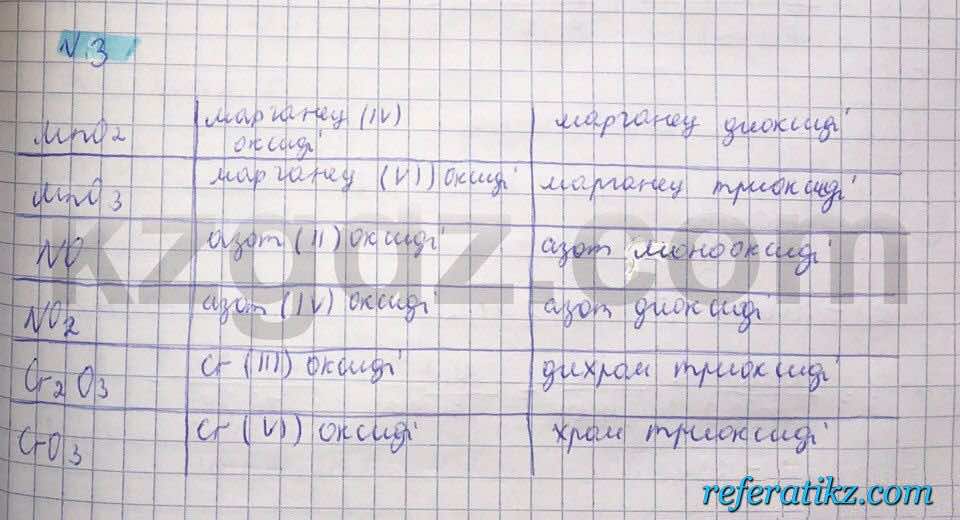 №3
MnO2 марганец (IV) оксиді марганец диоксиді
MnO3 марганец (VI) оксиді марганец триоксиді
NO азот (II) оксиді азот монооксиді
NO2 азот (IV) оксиді азот диоксиді
Cr2O3 Cr (III) оксиді дихром триоксиді
CrO3 Cr (VI) оксиді хром триоксиді
kzgdz.com
referatikz.com